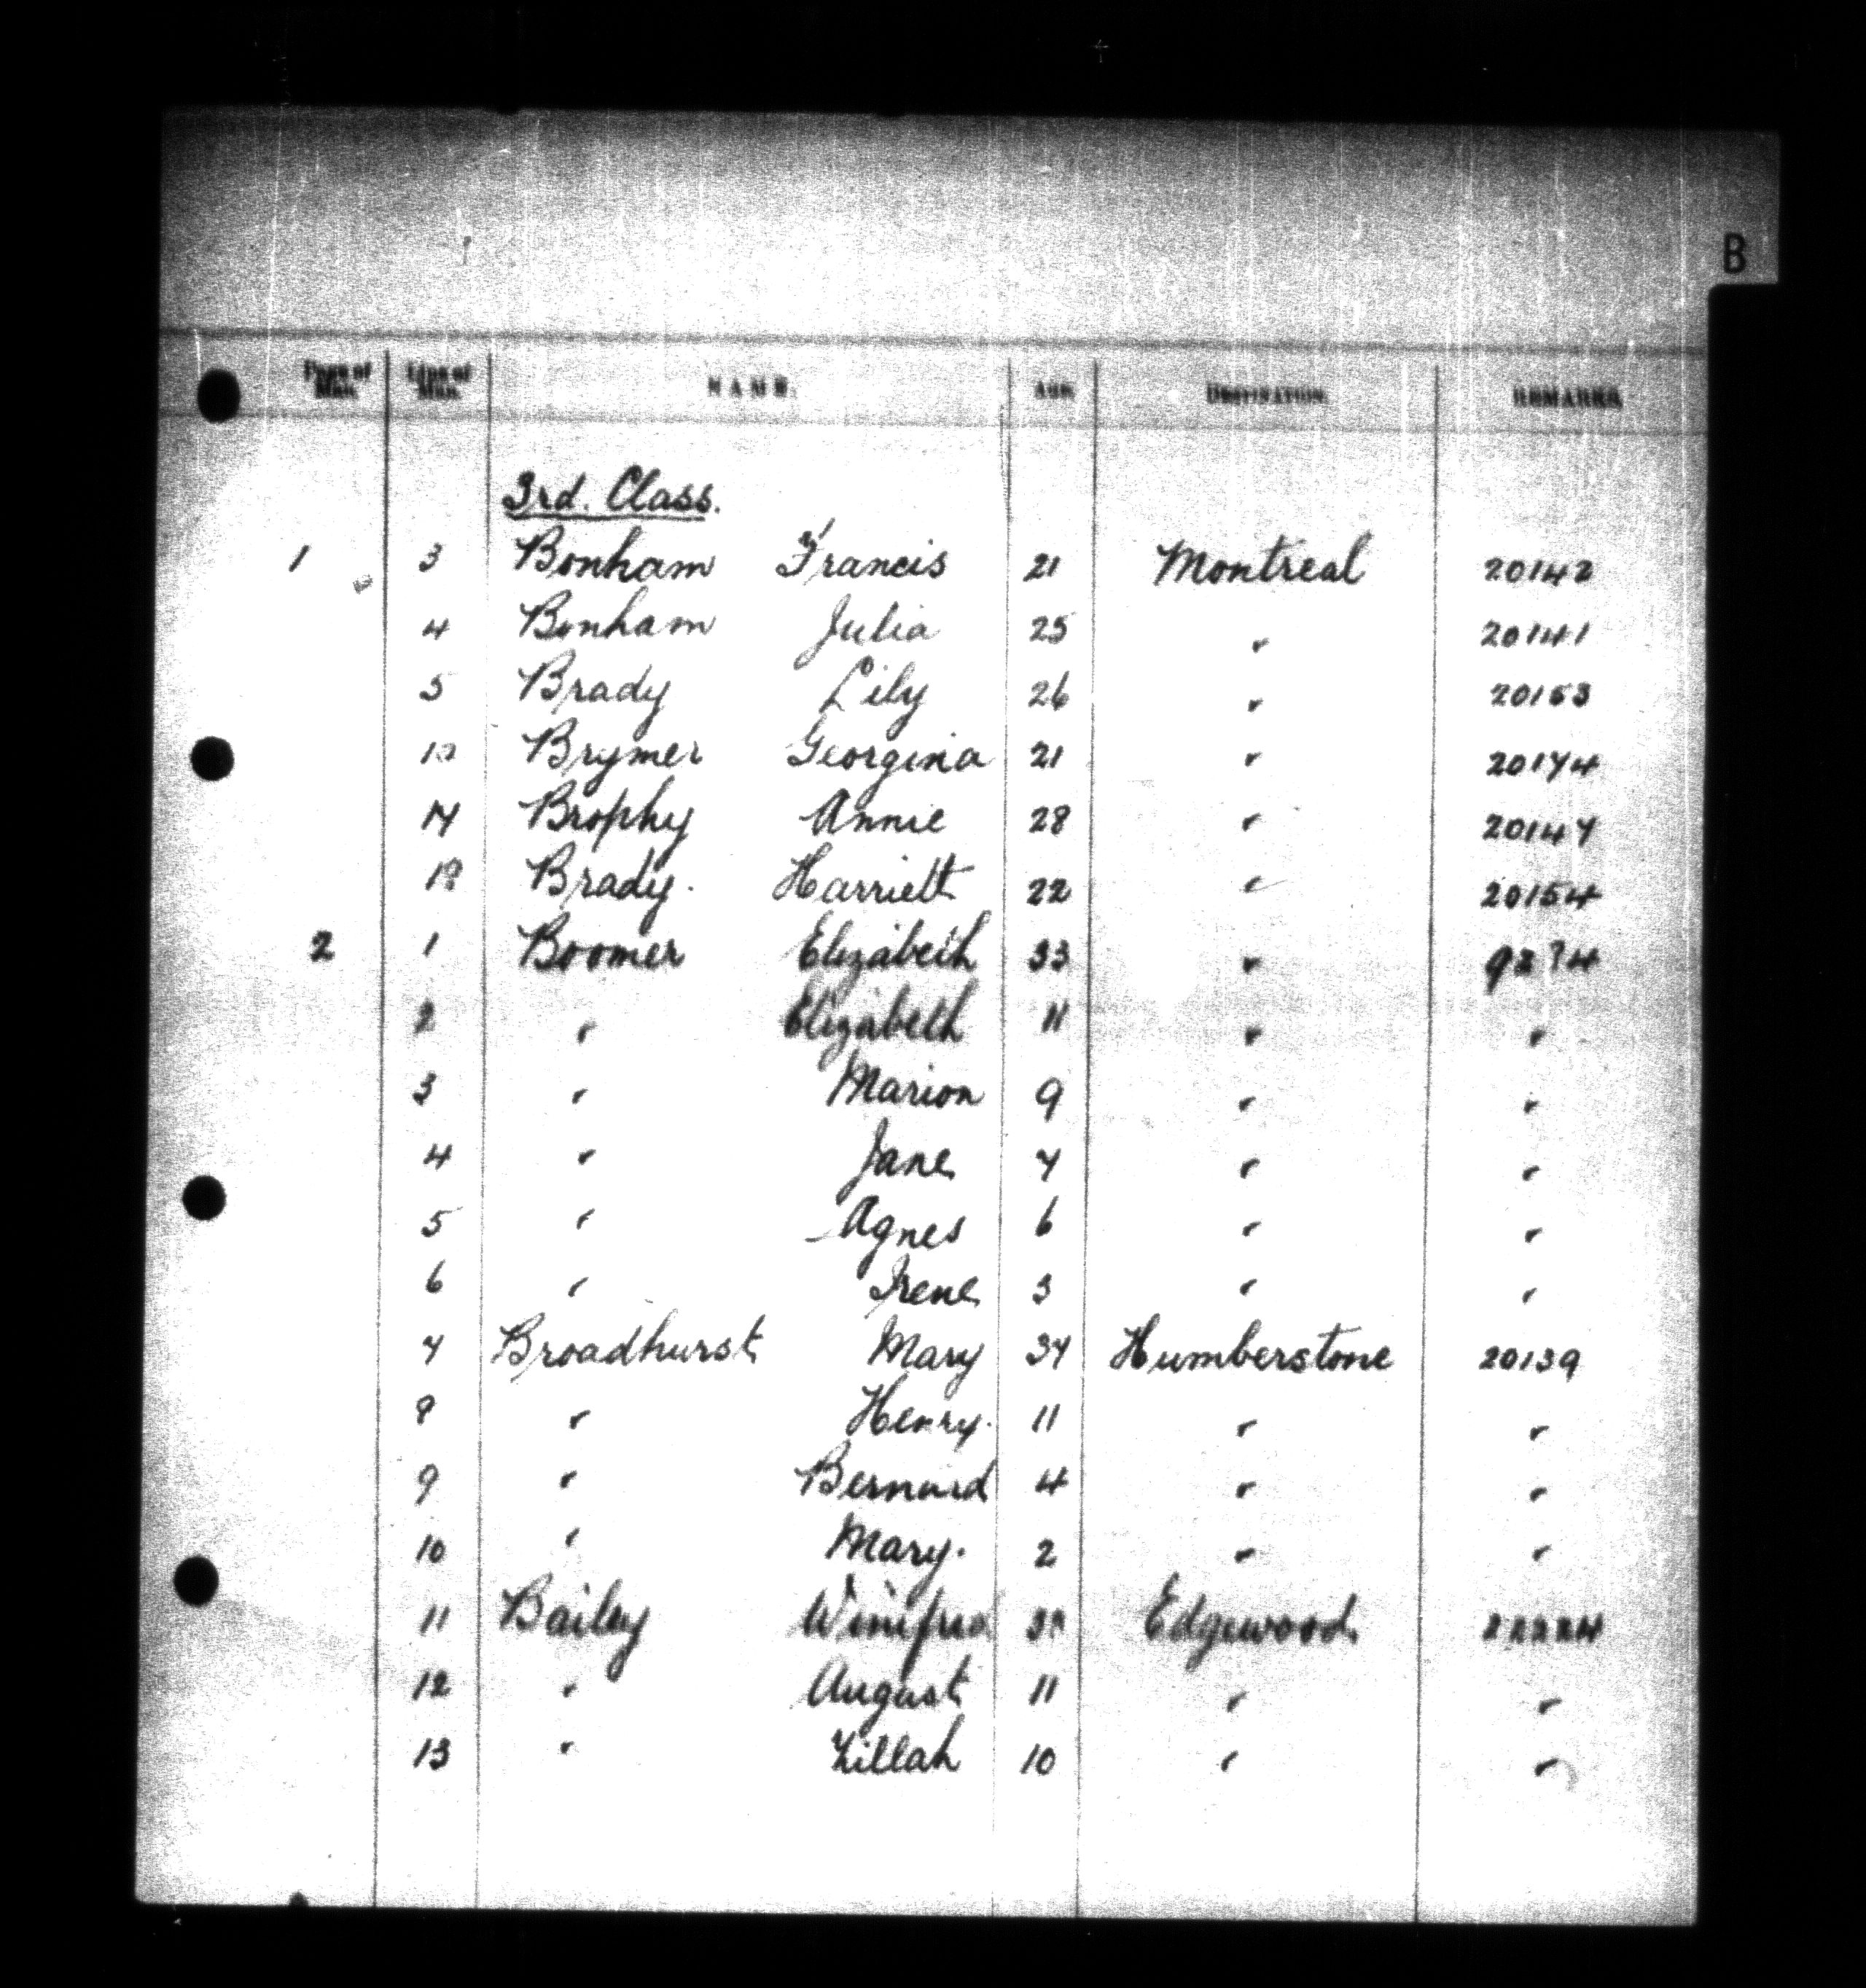 B
Page of Man. Line of Man. NAME. AGE. DESTINATION. REMARKS
3rd. Class.
1 3 Bonham Francis 21 Montreal 20142
4 Bonham Julia 25 " 20141
5 Brady Lily 26 " 20153
Brymer Georgina 21 " 20174
17 Brophy Annie 28 " 20147
18 Brady. Harriett 22 " 20154
2 1 Boomer Elizabeth 33 "
2 " Elizabeth 11 " "
3 " Marion 9 " "
4 " Jane 7 " "
5 " Agnes 6 " "
6 " Irene 3 " "
7 Broadhurst Mary 37 Humberstone 20139
8 " Henry. 11 " "
9 " Bernard 4 " "
10 " Mary. 2 " "
11 Bailey Edgewood
12 " August 11 " "
13 " Zillah 10 " "